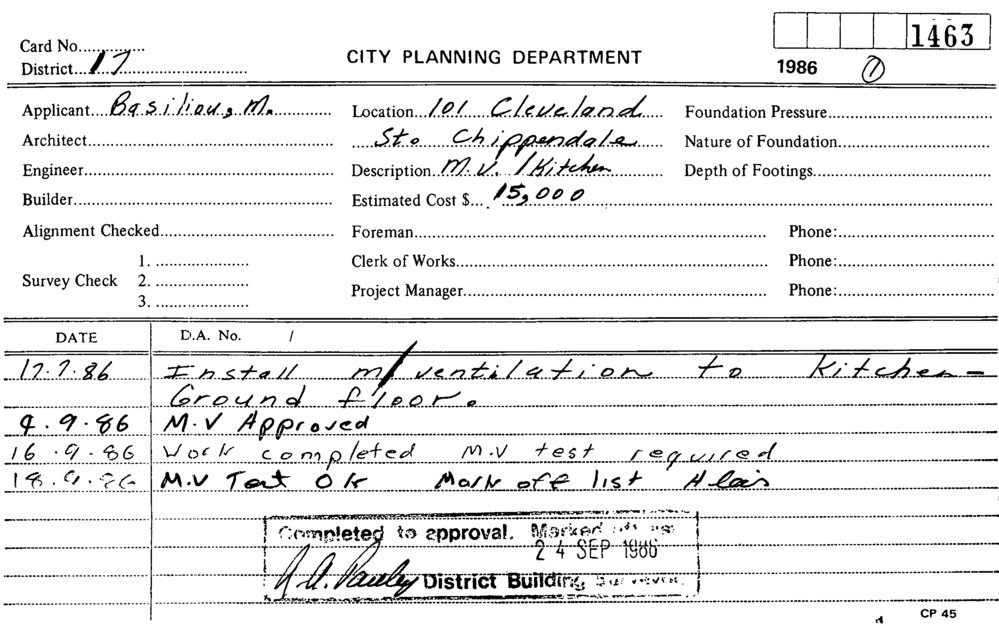 1463
Card No...............
CITY PLANNING DEPARTMENT
District... 17
1986 1
Applicant... Basiliou, M. Location... 101 Cleveland Foundation Pressure
Architect St. Chippendale Nature of Foundation
Engineer Description M.V. /Kitchen Depth of Footings
Builder Estimated Cost $... 15,000
Alignment Checked Foreman Phone:
1. Clerk of Works Phone:
Survey Check 2.
3. Project Manager Phone:
DATE D.A. No. /
17.7.86 Install m/ventilation to Kitchen-
Ground floor.
4.9.86 M.V Approved
16.9.86 Work completed M.V test required
18.9.86 M.V Test OK Mark off list
Completed to approval. Marked off list
24 SEP 1986
District Building Surveyor.
CP 45